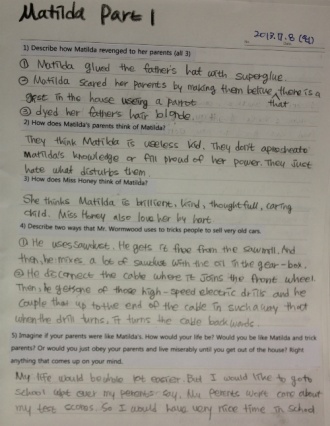 Matilda Part 1
2017.11.8 (수)
1) Describe how Matilda revenged to her parents (all 3)
① Matilda glued the father's hat with superglue.
② Matilda scared her parents by making them belive there is a
that
gost in the house useing a parrot
③ dyed her father's hair blonde.
2) How does Matilda's parents think of Matilda?
They think Matilda is useless kid. They don't
Matilda's knowledge or fill proud of her power. They just
hate what disturbs them
3) How does Miss Honey think of Matilda?
She thinks Matilda is brillient, kind, thoughtfull, caring
child. Miss Honey also love her by hart
4) Describe two ways that Mr. Wormwood uses to tricks people to sell very old cars.
① He uses sawdust. He gets it free from the sawmill. And
then, he mixes a lot of sawdust with the oil in the gear-box.
② He disconnect the cable where it joins the front wheel
Then, he gets one of those high-speed electric drills and he
Couple that up to the end of the cable in such a way that
when the drill turns, it turns the cable backwards.
5) Imagine if your parents were like Matilda's. How would your life be? Would you be like Matilda and trick
parents? Or would you just obey your parents and live miserably until you get out of the house? Right
anything that comes up on your mind.
My life would be whole lot easier. But I would like to go to
school what ever my parents say. My parents won't care about
my test scores. So I would have very nice time in school